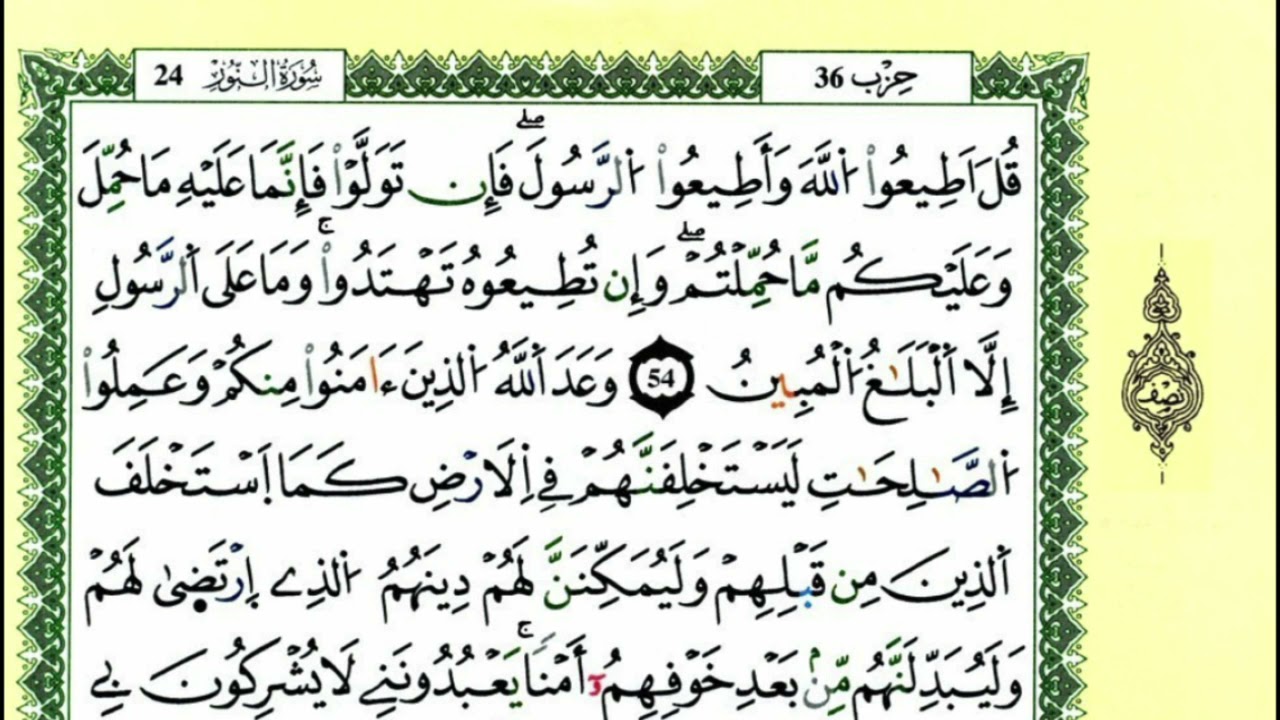 حِزْب 36
سُورَةُ النُّور 24
قُلَ اَطِيعُواْ اُ۬للَّهَ وَأَطِيعُواْ اُ۬لرَّسُولَۖ فَإِن تَوَلَّوْاْ فَإِنَّمَا عَلَيْهِ مَا حُمِّلَ
وَعَلَيْكُم مَّا حُمِّلْتُمْۖ وَإِن تُطِيعُوهُ تَهْتَدُواْۚ وَمَا عَلَى اَ۬لرَّسُولِ
إِلَّا اَ۬لْبَلَٰغُ اُ۬لْمُبِينُ 54 وَعَدَ اَ۬للَّهُ اُ۬لذِينَ ءَامَنُواْ مِنكُمْ وَعَمِلُواْ
اُ۬لصَّٰلِحَٰتِ لَيَسْتَخْلِفَنَّهُمْ فِے اِ۬لَارْضِ كَمَا اَ۪سْتَخْلَفَ
اَ۬لذِينَ مِن قَبْلِهِمْ وَلَيُمَكِّنَنَّ لَهُمْ دِينَهُمُ اُ۬لذِے اِ۪رْتَض۪ىٰ لَهُمْ
وَلَيُبَدِّلَنَّهُم مِّنۢ بَعْدِ خَوْفِهِمُۥٓ أَمْناٗۚ يَعْبُدُونَنِے لَا يُشْرِكُونَ بِے
نِصْف